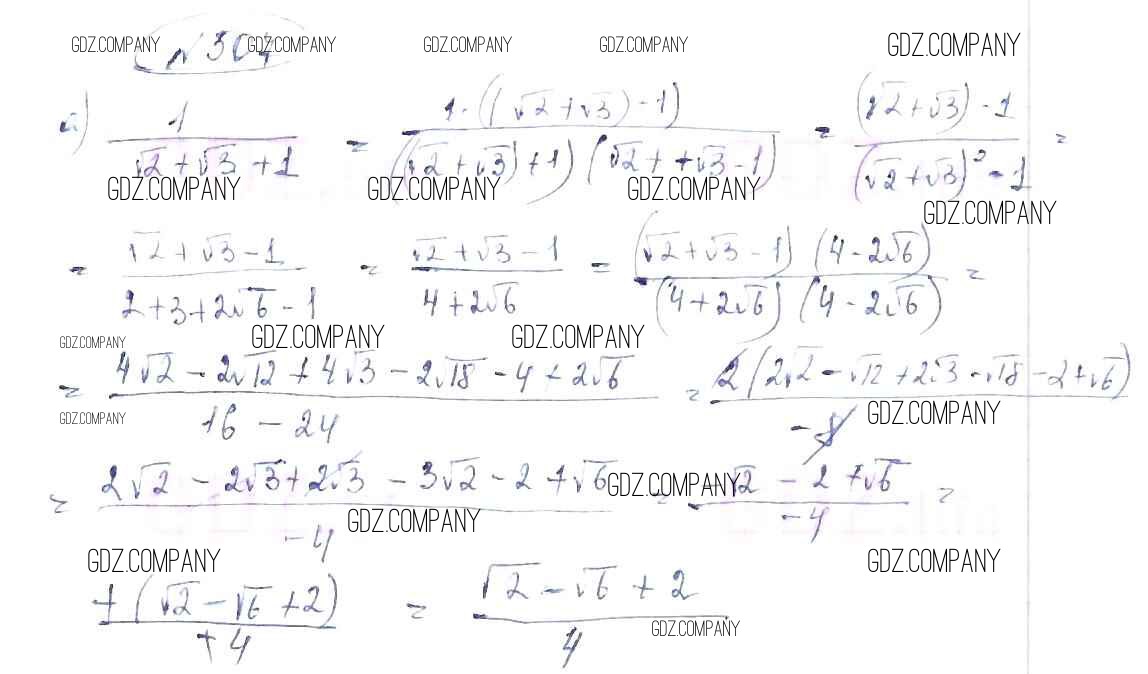 GDZ.COMPANY GDZ.COMPANY GDZ.COMPANY GDZ.COMPANY GDZ.COMPANY
№304
а) 1/(√2+√3+1) = 1·((√2+√3)-1)/(((√2+√3)+1)(√2++√3-1)) = ((√2+√3)-1)/((√2+√3)²-1) =
GDZ.COMPANY GDZ.COMPANY GDZ.COMPANY GDZ.COMPANY
= (√2+√3-1)/(2+3+2√6-1) = (√2+√3-1)/(4+2√6) = ((√2+√3-1)(4-2√6))/((4+2√6)(4-2√6)) =
GDZ.COMPANY GDZ.COMPANY GDZ.COMPANY
= (4√2-2√12+4√3-2√18-4+2√6)/(16-24) = 2(2√2-√12+2√3-√18-2+√6)/(-8)
GDZ.COMPANY GDZ.COMPANY
= (2√2-2√3+2√3-3√2-2+√6)/(-4) = (-√2-2+√6)/(-4) =
GDZ.COMPANY GDZ.COMPANY
GDZ.COMPANY GDZ.COMPANY
+(√2-√6+2)/(+4) = (√2-√6+2)/4
GDZ.COMPANY